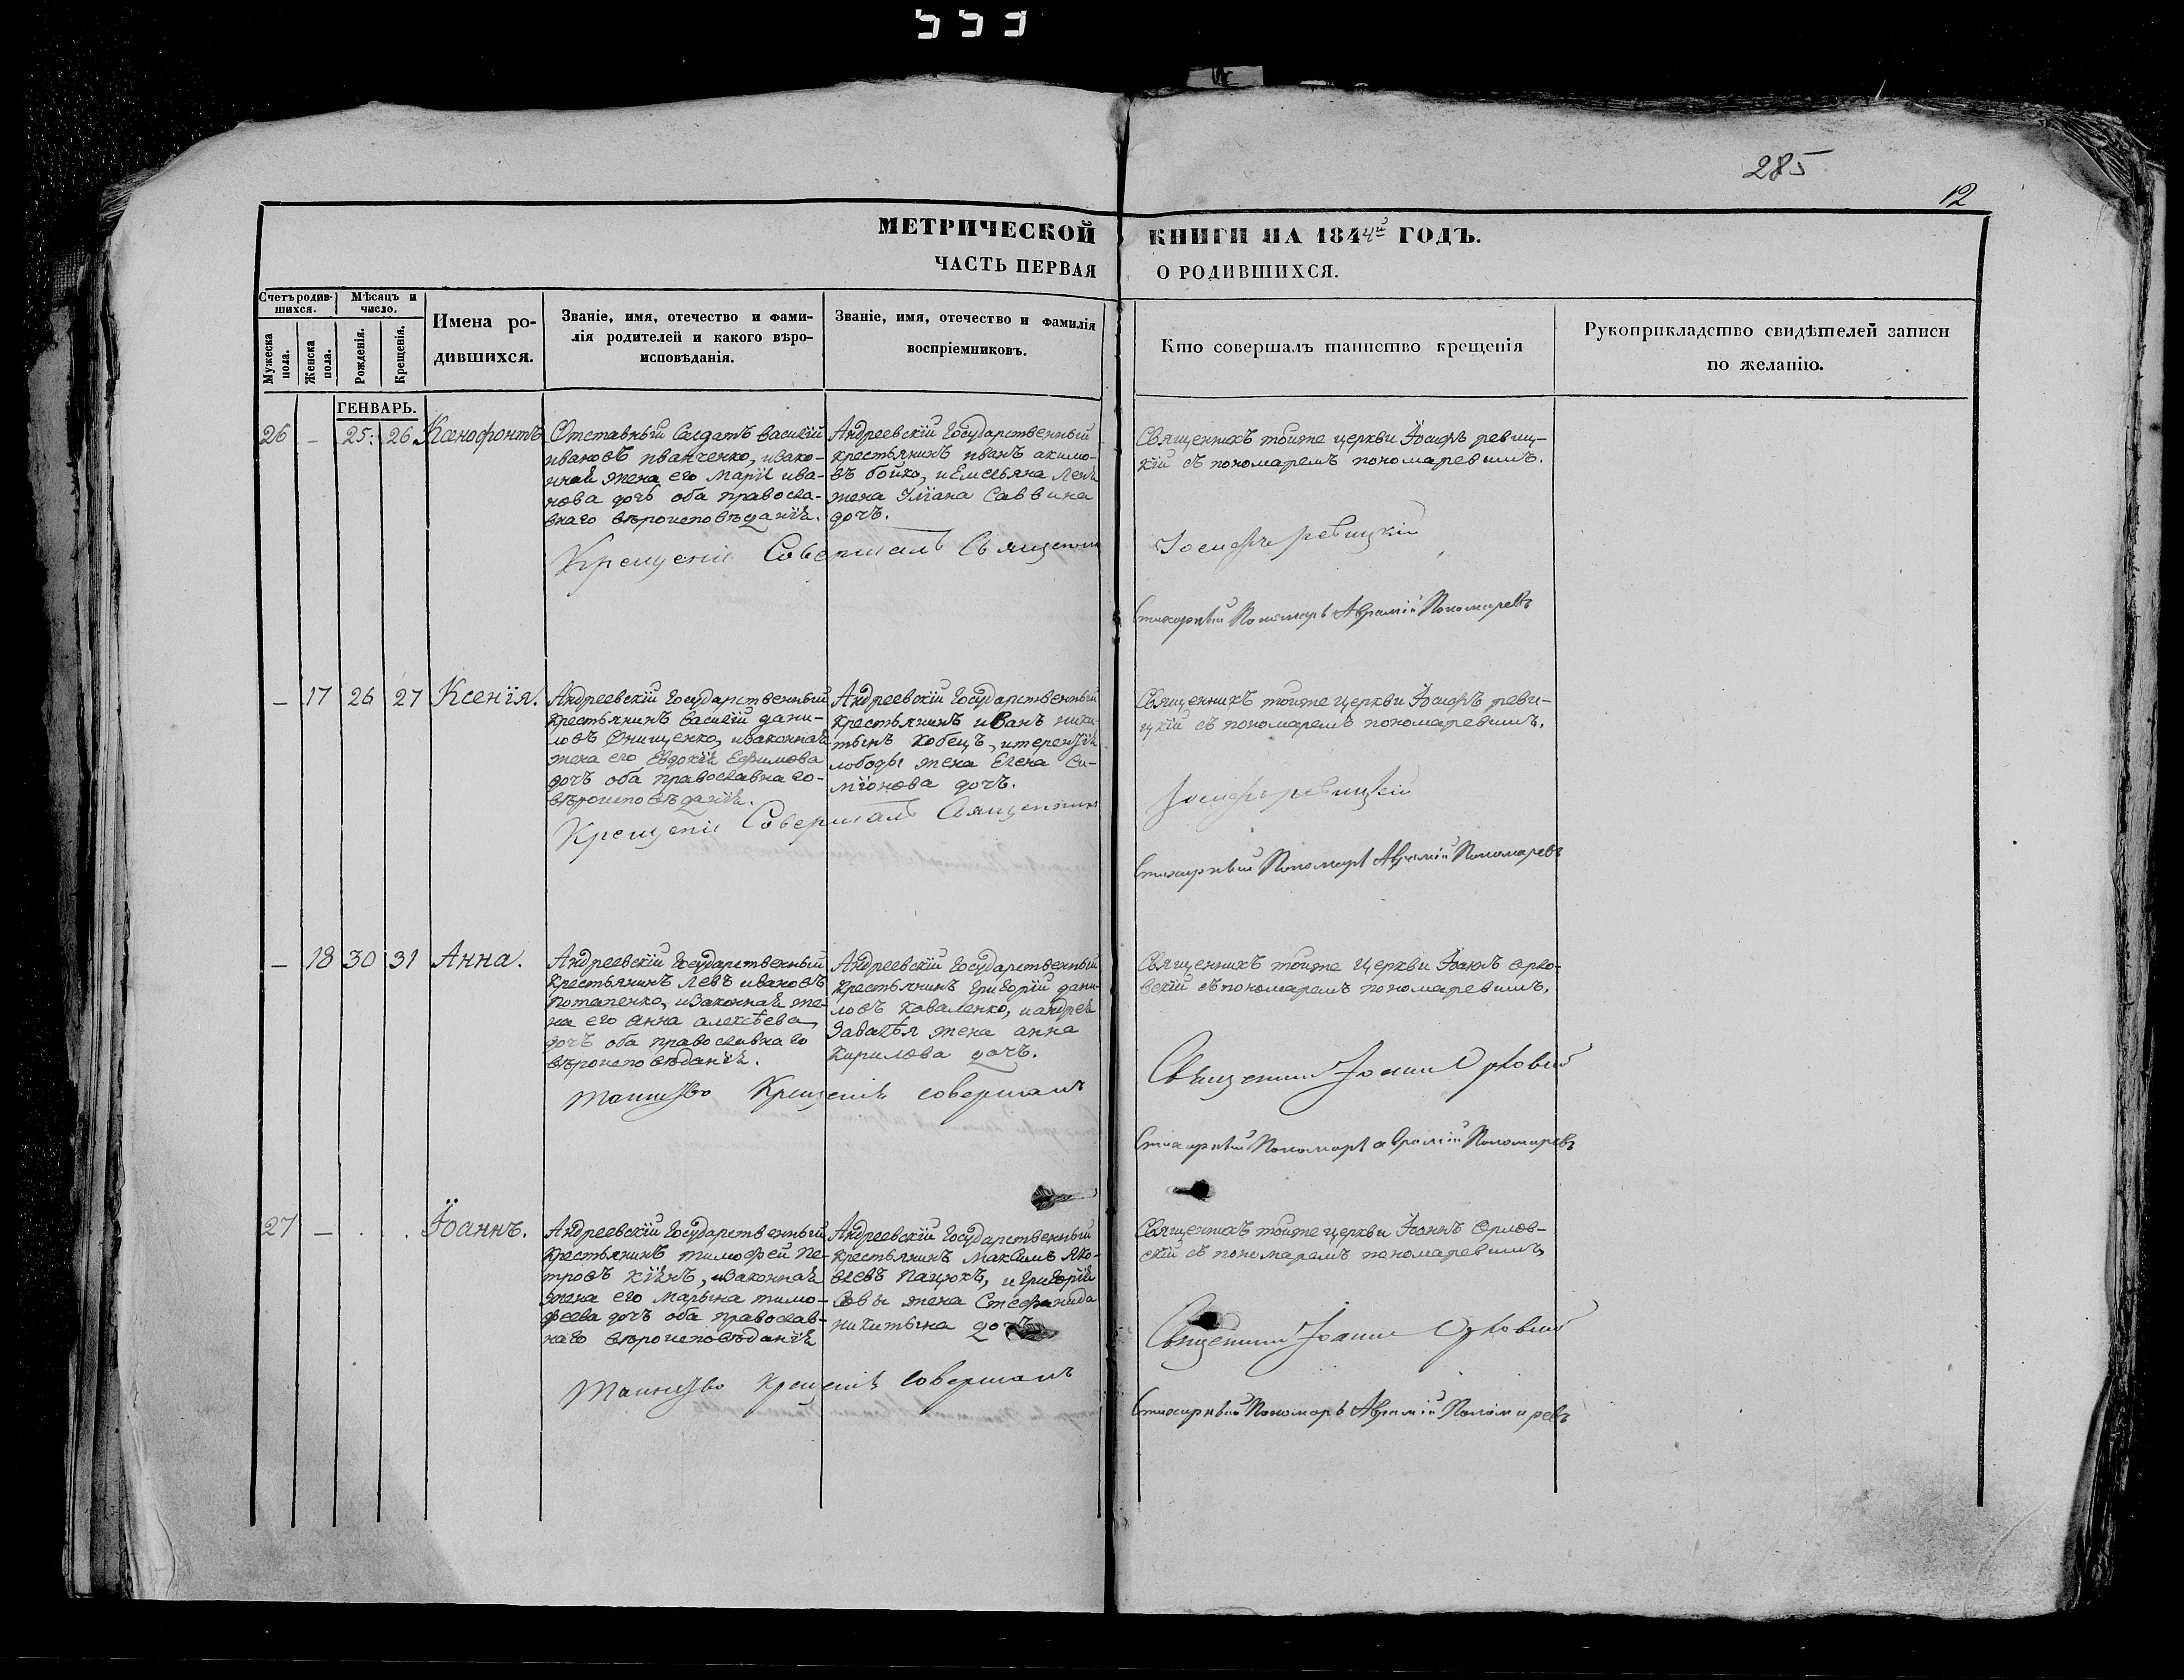 285
12
МЕТРИЧЕСКОЙ КНИГИ НА 1844й ГОДЪ.
ЧАСТЬ ПЕРВАЯ О РОДИВШИХСЯ.
Счетъ родив-
шихся.
Мужеска
пола.
Женска
пола.
Мѣсяцъ и
число.
Рожденія.
Крещенія.
Имена ро-
дившихся.
Званіе, имя, отечество и фами-
лія родителей и какого вѣро-
исповѣданія.
Званіе, имя, отечество и фамилія
воспріемниковъ.
Кто совершалъ таинство крещенія
Рукоприкладство свидѣтелей записи
по желанію.
ГЕНВАРЬ.
26 – 25: 26 Ксенофонтъ
Отставный Салдатъ василій
ивановъ иванченко, изако-
нная жена его Марія ива-
нова дочь оба правосла-
внаго вѣроисповѣданія.
Андреевскій Государственный
крестьянинъ иванъ акимо-
въ бойко, и Емельяна
жена Уліана Саввина
дочъ.
Священникъ тоиже церкви Іосифъ ревиц-
кій съ пономаремъ пономаревимъ.
Крещеніе Совершалъ Священник Іосифъ ревицкій
Стихарный Пономарь Аврамій Пономаревъ
– 17 26 27 Ксенія.
Андреевскій Государственный
крестьянинъ василій дани-
ловъ Онищенко, изаконная
жена его Евдокія Ефимова
дочъ оба православнаго-
вѣроисповѣданія.
Андреевскій Государственный
крестьянинъ иванъ ники-
тынъ Кобецъ, итерентія
лободы жена Елена Си-
міонова дочъ.
Священникъ тоиже церкви Іосифъ реви-
цкій съ пономаремъ пономаревимъ.
Крещеніе Совершалъ Священник Іосифъ ревицкій
Стихарный Пономарь Аврамій Пономаревъ
– 18 30 31 Анна.
Андреевскій Государственный
крестьянинъ Левъ ивановъ
потапенко, изаконная же-
на его анна алексѣева
дочъ оба православнаго
вѣроисповѣданія.
Андреевскій Государственный
крестьянинъ григорій дани-
ловъ коваленко, иандрея
жена анна
кирилова дочъ.
Священникъ тоиже Церкви Іоаннъ орло-
вскій съ пономаремъ пономаревимъ.
таинство Крещенія совершалъ
Священник Іоанн Орловский
Стихарный Пономарь аврамій Пономаревъ
27 – . . Іоаннъ.
Андреевскій Государственный
крестьянинъ тимофей пе-
тровъ кіянъ, изаконная
жена его марына тимо-
феева дочъ оба православ-
наго вѣроисповѣданія
Андреевскій Государственный
крестьянинъ максимъ яко-
влевъ пацюкъ, и григорія
Совы жена Стефанида
никитына дочъ
Священникъ тоиже церкви Іоаннъ орлов-
скій съ пономаремъ пономаревимъ
таинство крещенія совершалъ
Священник Іоанн Орловский
Стихарный Пономарь Аврамій Пономаревъ